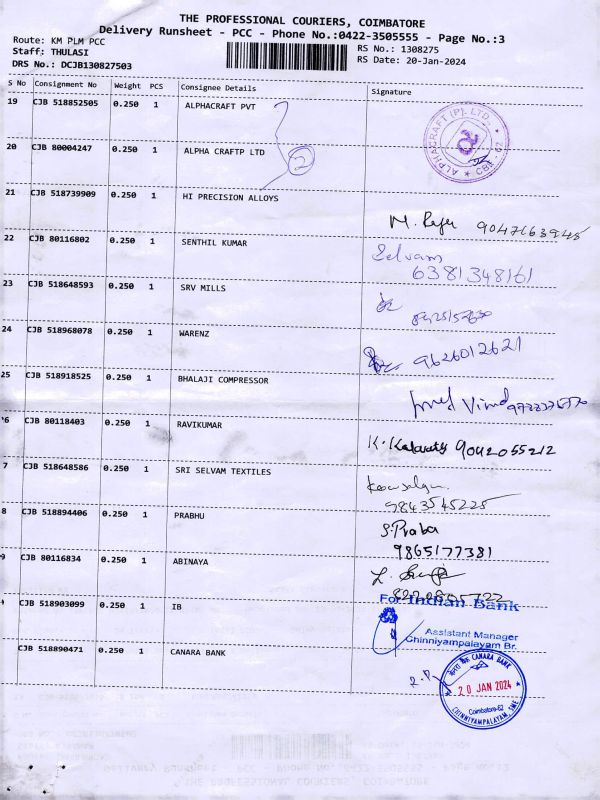 THE PROFESSIONAL COURIERS, COIMBATORE
Delivery Runsheet - PCC - Phone No.:0422-3505555 - Page No.:3
Route: KM PLM PCC
Staff: THULASI
DRS No.: DCJB130827503
RS No.: 1308275
RS Date: 20-Jan-2024
S No Consignment No Weight PCS Consignee Details Signature
19 CJB 518852505 0.250 1 ALPHACRAFT PVT
ALPHACRAFT (P). LTD. ★ CBE - 62 ★
20 CJB 80004247 0.250 1 ALPHA CRAFTP LTD 2
21 CJB 518739909 0.250 1 HI PRECISION ALLOYS
22 CJB 80116802 0.250 1 SENTHIL KUMAR Selvam
6381348161
23 CJB 518648593 0.250 1 SRV MILLS
24 CJB 518968078 0.250 1 WARENZ 9626012621
25 CJB 518918525 0.250 1 BHALAJI COMPRESSOR
6 CJB 80118403 0.250 1 RAVIKUMAR 9042055212
7 CJB 518648586 0.250 1 SRI SELVAM TEXTILES
9843545225
8 CJB 518894406 0.250 1 PRABHU S. Praba
9865177381
9 CJB 80116834 0.250 1 ABINAYA
CJB 518903099 0.250 1 IB For Indian Bank
Assistant Manager
Chinniyampalayam Br.
CJB 518890471 0.250 1 CANARA BANK
CANARA BANK
20 JAN 2024
Coimbatore-62
CHINNIYAMPALAYAM, SME